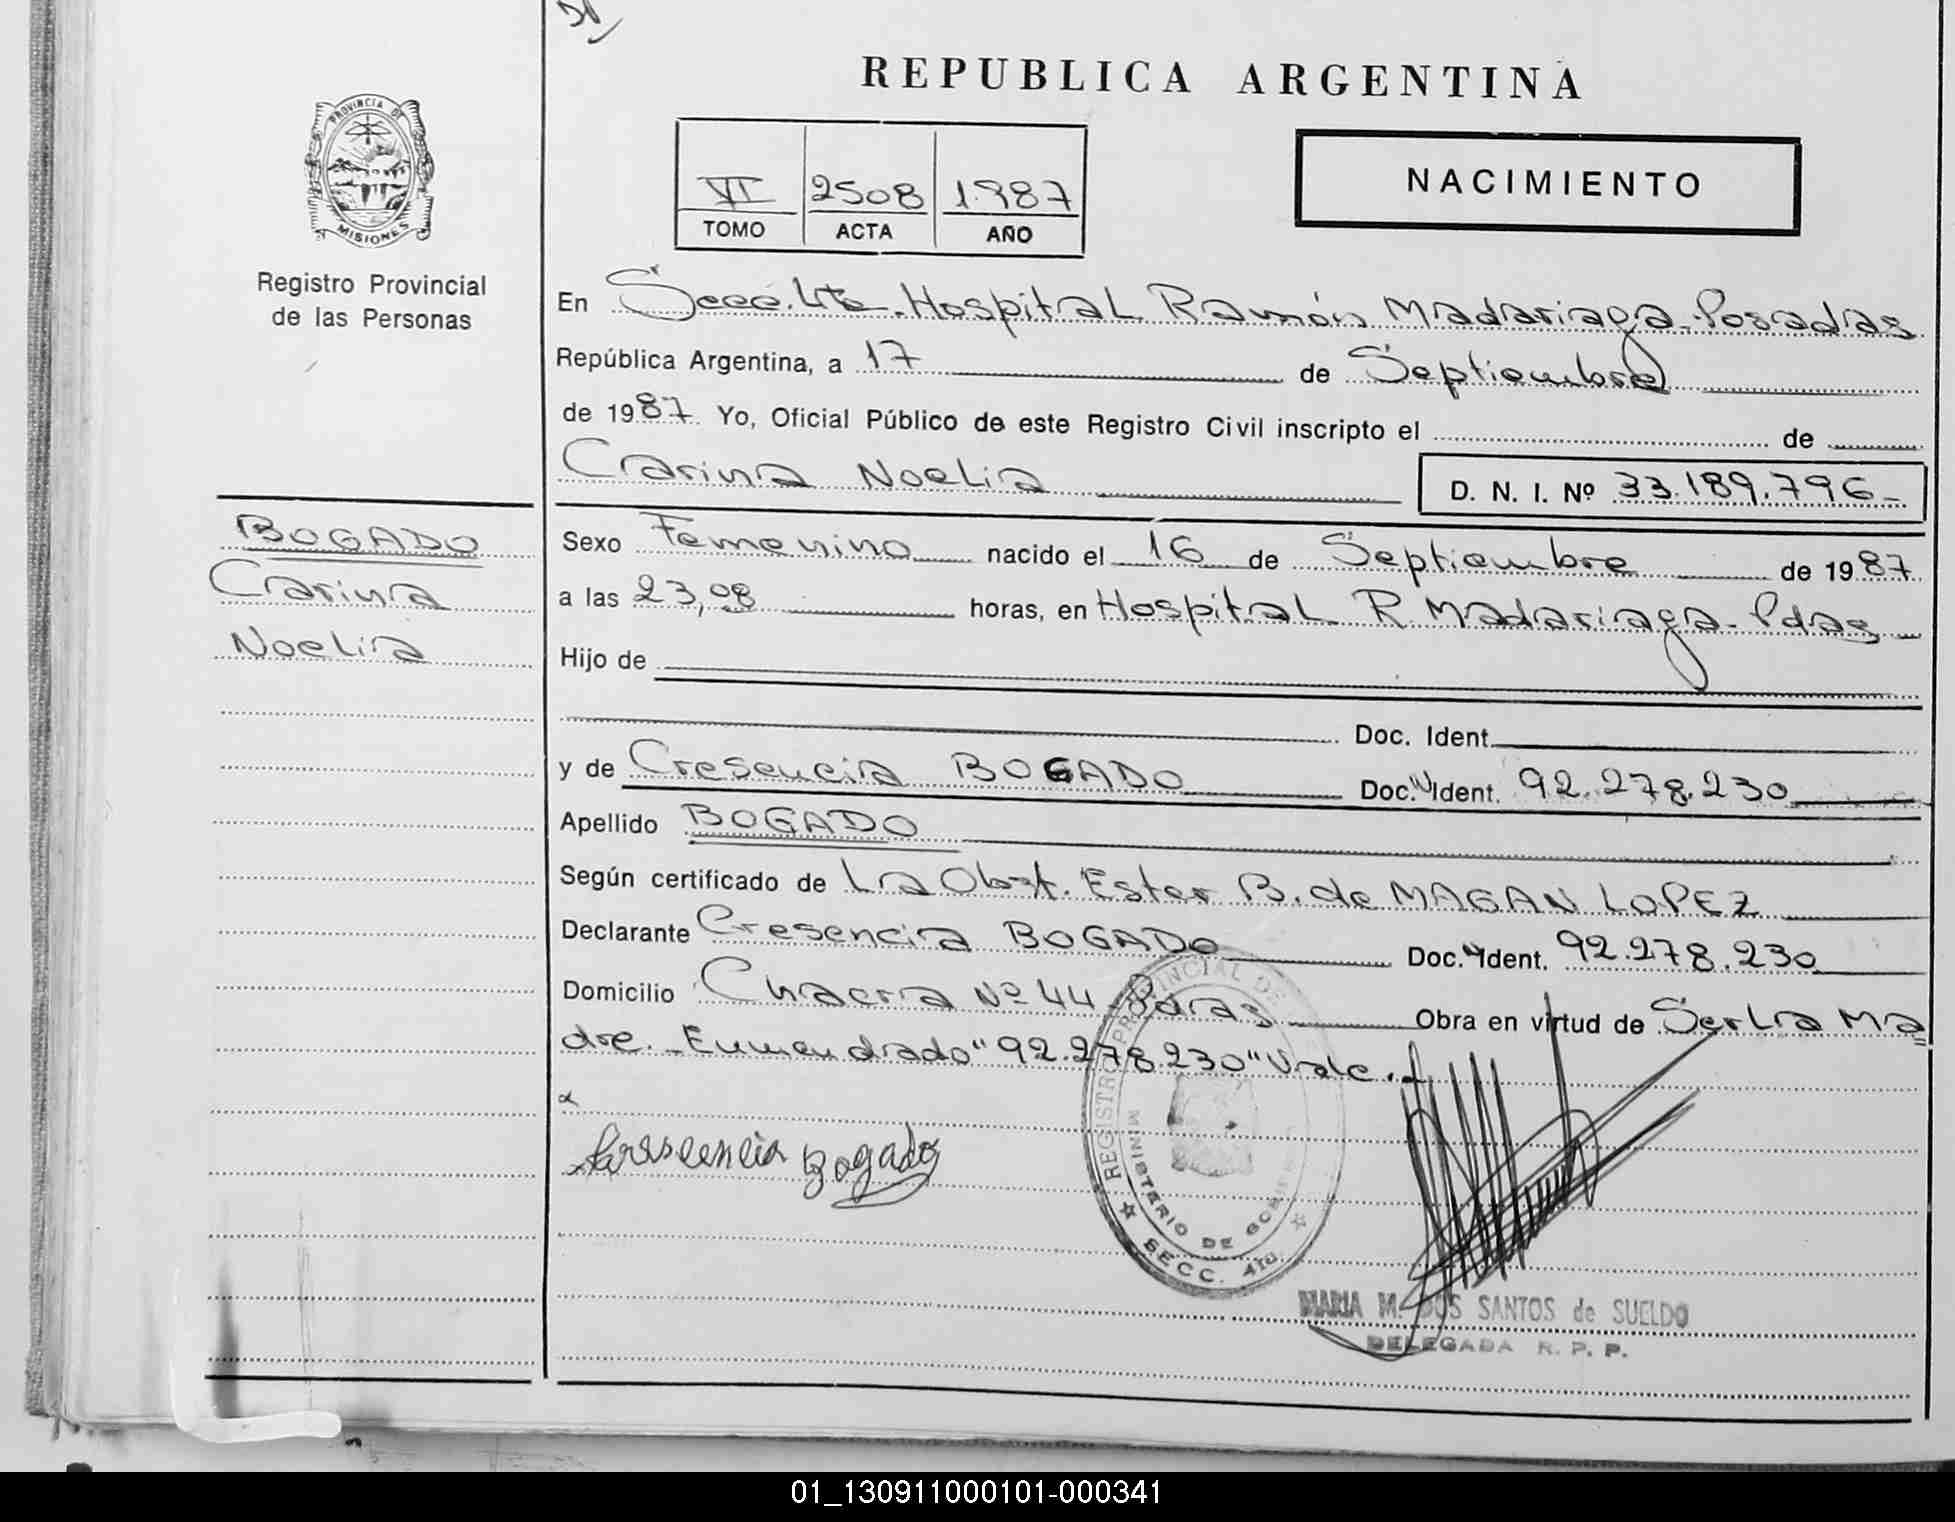 REPUBLICA ARGENTINA
PROVINCIA DE
MISIONES
Registro Provincial
de las Personas
VI 2508 1987
TOMO ACTA AÑO
NACIMIENTO
En Secc. 4ta. Hospital Ramón Madariaga - Posadas
República Argentina, a 17 de Septiembre
de 1987. Yo, Oficial Público de este Registro Civil inscripto el de
Carina Noelia
D. N. I. Nº 33.189.796-
BOGADO
Carina
Noelia
Sexo Femenino nacido el 16 de Septiembre de 1987
a las 23,08 horas, en Hospital R. Madariaga - Pdas
Hijo de
Doc. Ident.
y de Cresencia BOGADO Doc. Ident. 92.278.230
Apellido BOGADO
Según certificado de La Obst. Ester B. de MAGAN LOPEZ
Declarante Cresencia BOGADO Doc. Ident. 92.278.230
Domicilio Chacra Nº 44 - Pdas Obra en virtud de Ser La Ma
dre. - Enmendado "92.278.230" Vale.
Crescencia Bogado
REGISTRO PROVINCIAL DE
MINISTERIO DE
SECC. 4ta.
MARIA M. DOS SANTOS de SUELDO
DELEGADA R. P. P.
01_130911000101-000341